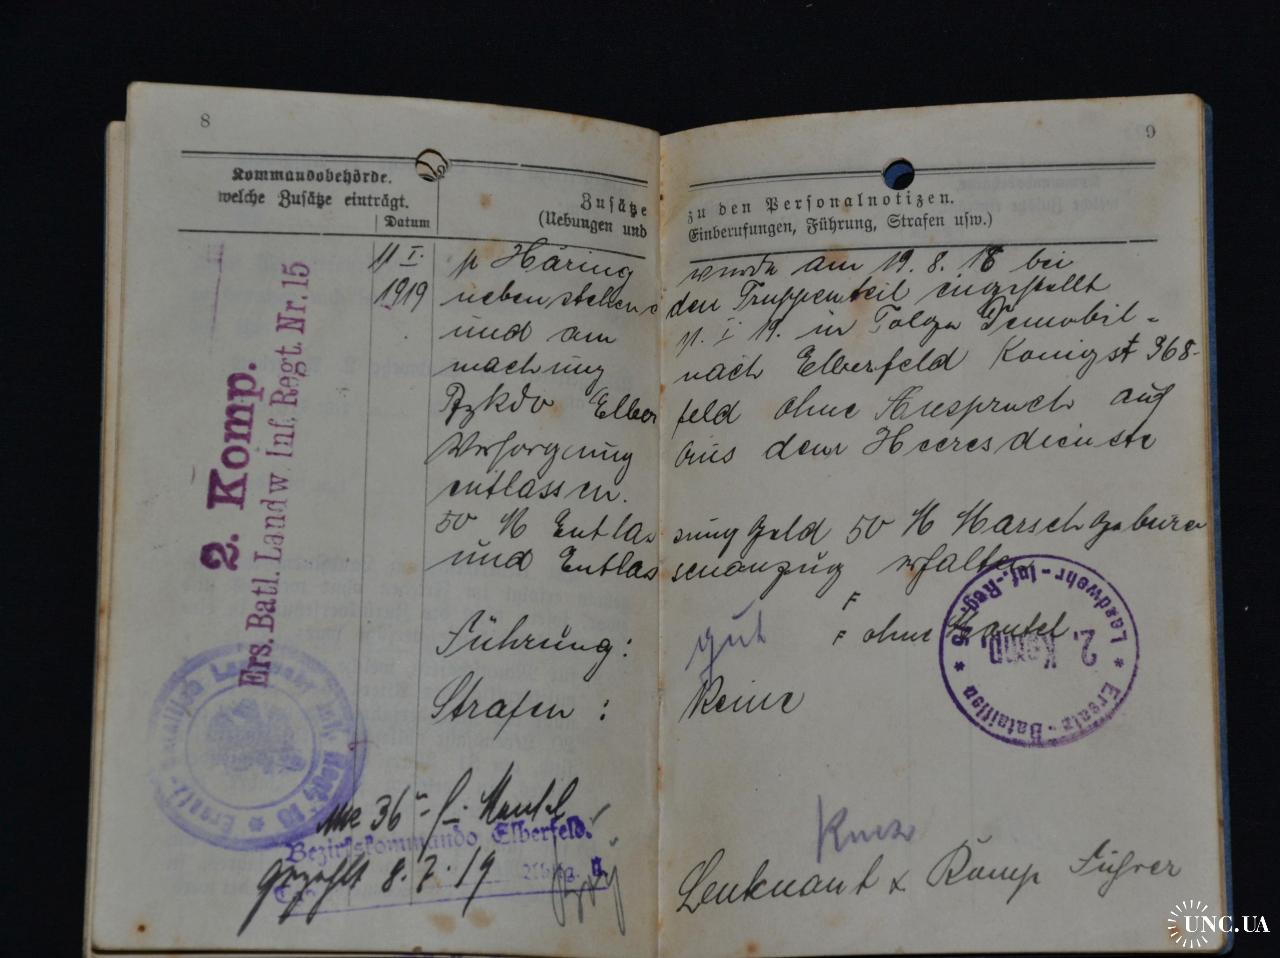 8
Kommandobehörde.
welche Zusätze einträgt.
Datum
Zusätze
(Uebungen und
11 I.
1919
2. Komp.
Ers. Batl. Landw. Inf. Regt. Nr. 15
p Häring
nebenstehend
und am
machung
Bzkdo Elber
Versorgung
entlassen.
50 M Entlas
und Entlas
Führung:
Strafen:
36 Mantel
Bezirkskommando Elberfeld.
Gezahlt 8.7.19
9
zu den Personalnotizen.
Einberufungen, Führung, Strafen usw.)
wurde am 19. 8. 18 bei
den Truppenteil eingestellt
11. I 19. in Folge Demobil-
nach Elberfeld Königst 368-
feld ohne Anspruch auf
aus dem Heeresdienste
sungsgeld 50 M Marschgebürn
senanzug erhalten
F
F ohne Mantel
gut
Keine
Ersatz-Bataillon * Landwehr-Inf.-Reg. 15 *
2. Komp.
Leutnant & Komp Führer
UNC.UA